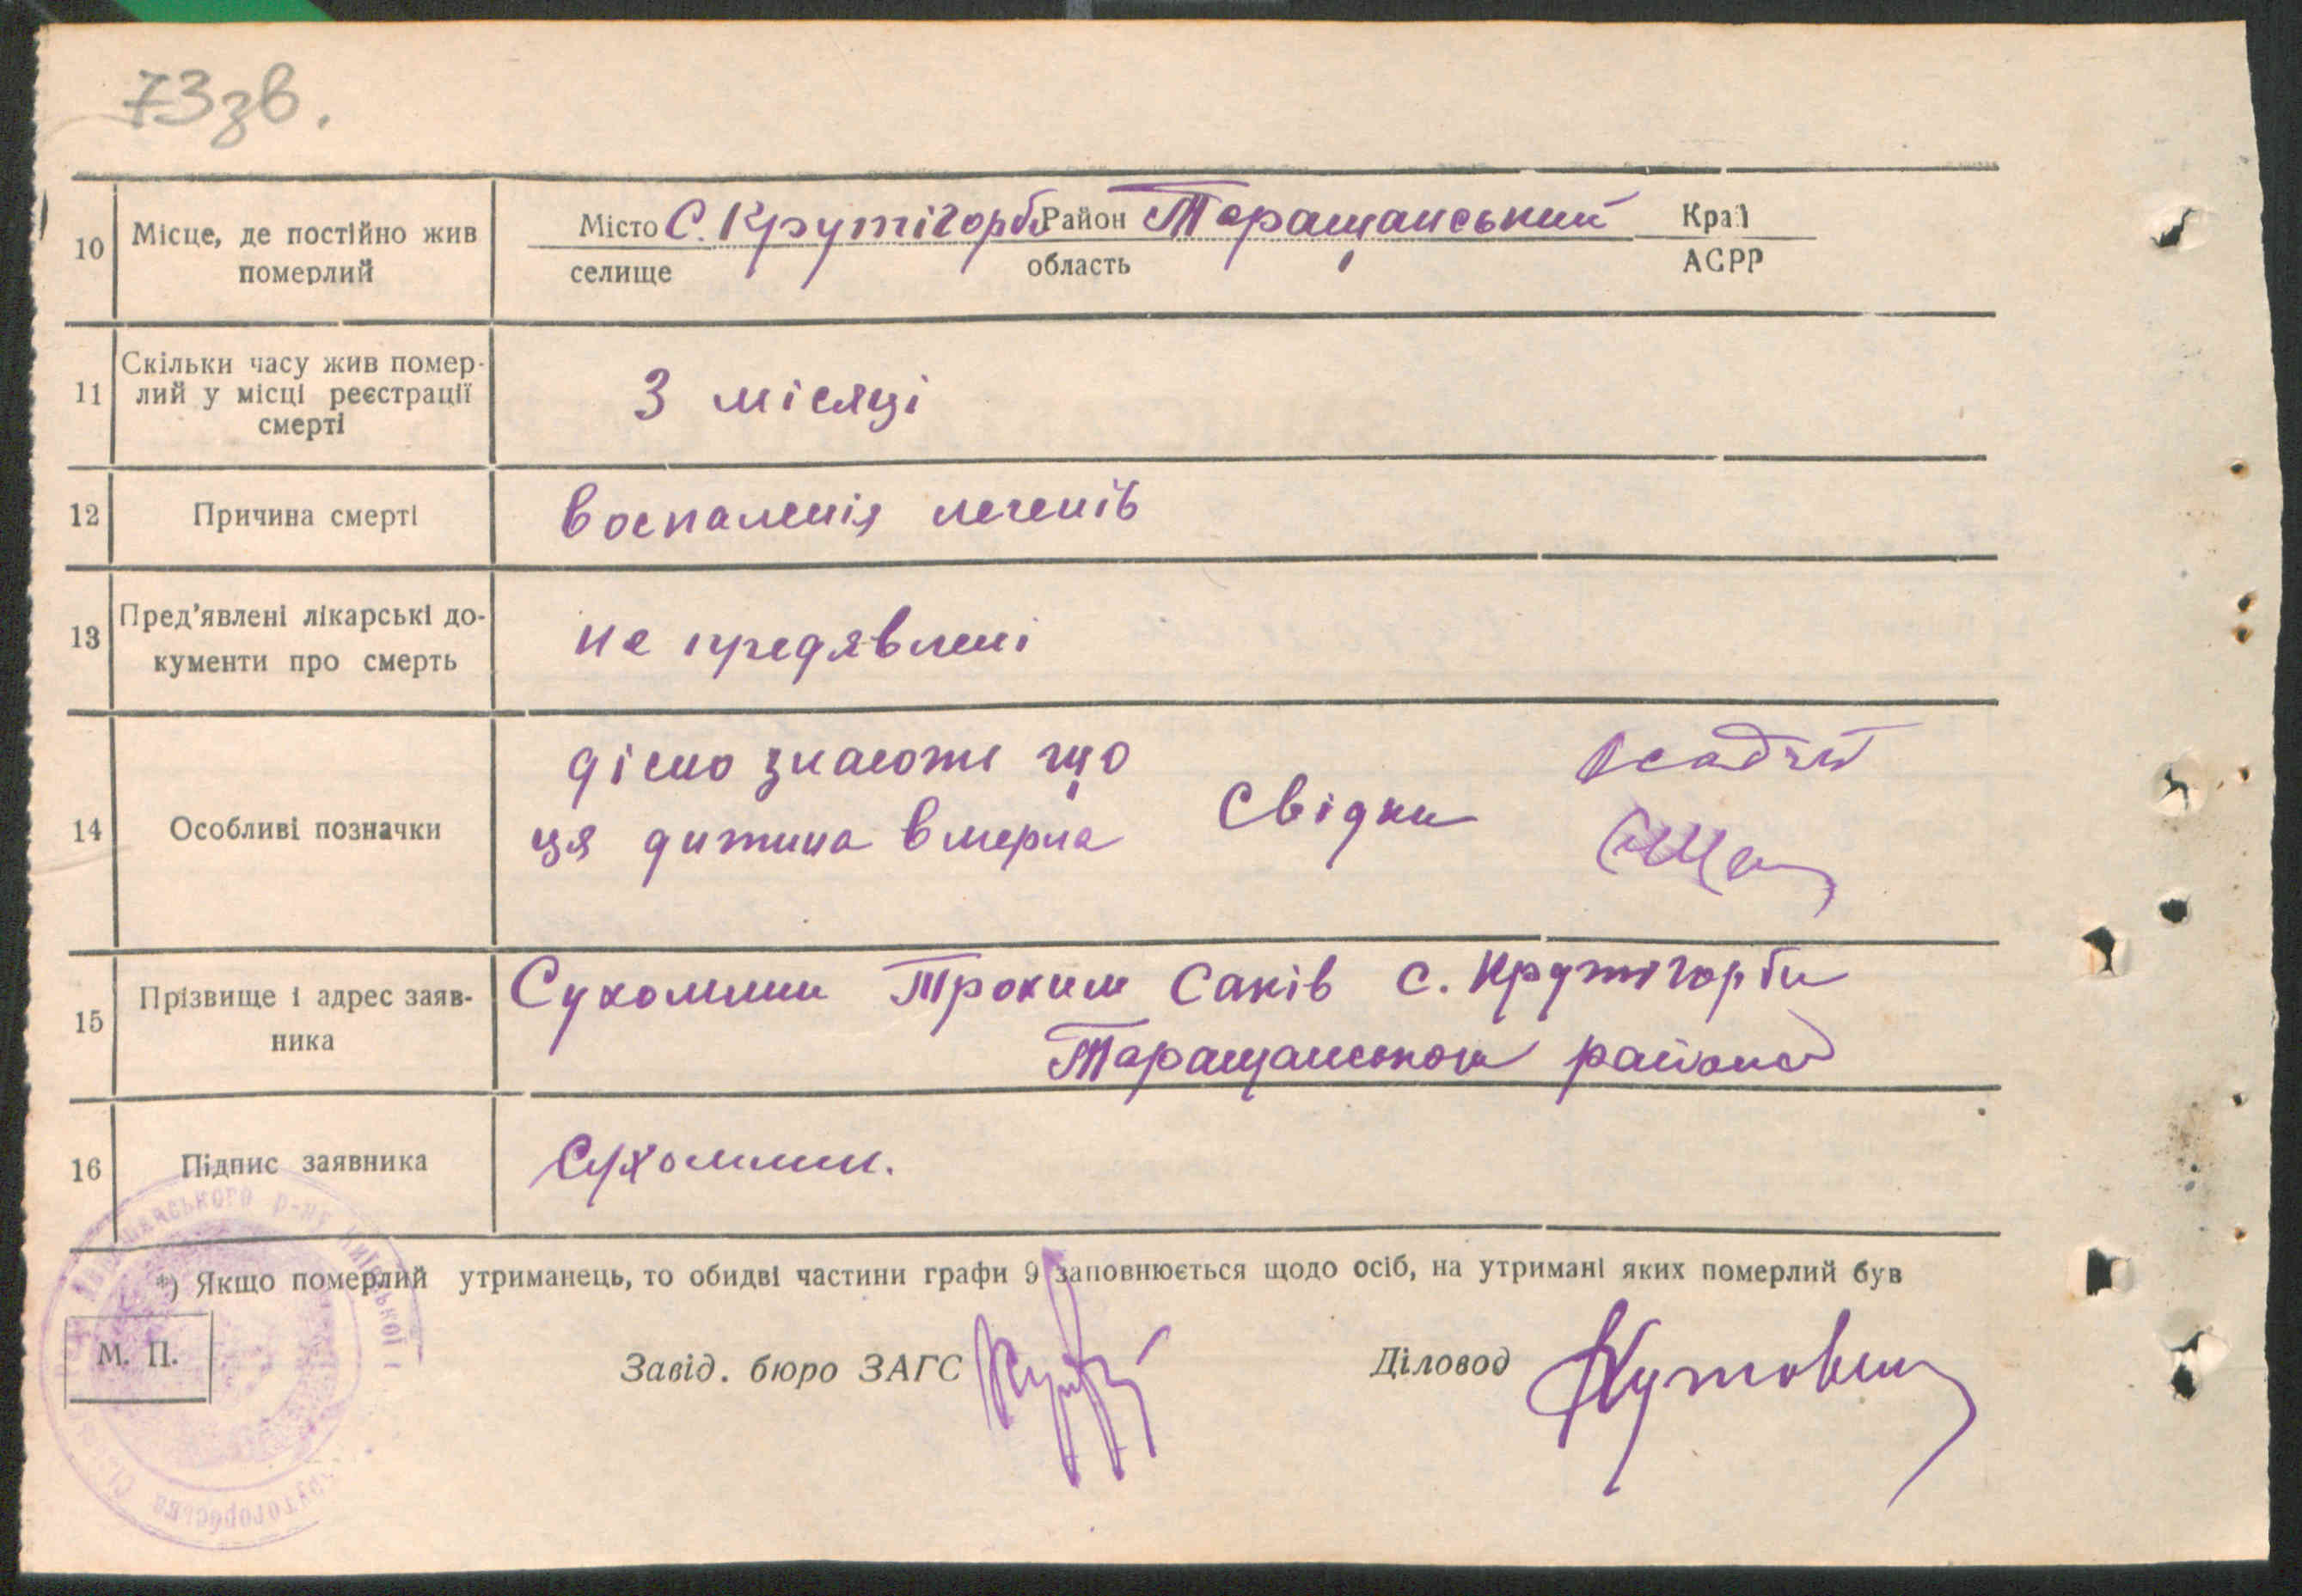 73зв.
10 Місце, де постійно жив померлий
Місто С. Крутігорби Район Таращанський Край
селище область АСРР
11 Скільки часу жив помер-
лий у місці реєстрації
смерті
3 місяці
12 Причина смерті воспаленія легенів
13 Пред’явлені лікарські до-
кументи про смерть
не предявлені
14 Особливі позначки
дісно що
ця дитина вмерла Свідки
15 Прізвище і адрес заяв-
ника
Сухомлин Трохим Саків с. Крутігорби
Таращанського района
16 Підпис заявника Сухомлин.
*) Якщо померлий утриманець, то обидві частини графи 9 заповнюється щодо осіб, на утримані яких померлий був
М. П. Завід. бюро ЗАГС Діловод
р-ну Київської